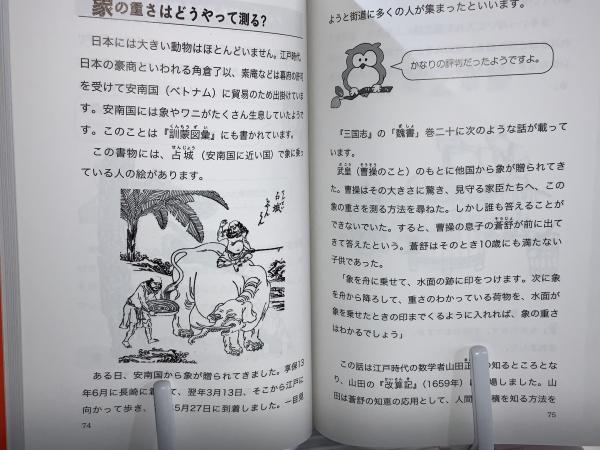 象の重さはどうやって測る?
日本には大きい動物はほとんどいません。江戸時代、
日本の豪商といわれる角倉了以、素庵などは幕府の許可
を受けて安南国(ベトナム)に貿易のため出掛けていま
す。安南国には象やワニがたくさん生息していたようで
す。このことは『訓蒙図彙』にも書かれています。
この書物には、占城(安南国に近い国)で象に乗っ
ている人の絵があります。
占城
ある日、安南国から象が贈られてきました。享保13
年6月に長崎に着いて、翌年3月13日、そこから江戸に
向かって歩き、5月27日に到着しました。一目見
74
ようと街道に多くの人が集まったといいます。
かなりの評判だったようですよ。
『三国志』の「魏書」巻二十に次のような話が載って
います。
武皇(曹操のこと)のもとに他国から象が贈られてき
た。曹操はその大きさに驚き、見守る家臣たちへ、この
象の重さを測る方法を尋ねた。しかし誰も答えることが
できないでいた。すると、曹操の息子の蒼舒が前に出て
きて答えたという。蒼舒はそのとき10歳にも満たない
子供であった。
「象を舟に乗せて、水面の跡に印をつけます。次に象
を舟から降ろして、重さのわかっている荷物を、水面が
象を乗せたときの印までくるように入れれば、象の重さ
はわかるでしょう」
この話は江戸時代の数学者山田正の知るところとな
り、山田の『改算記』(1659年)に場しました。山
田は蒼舒の知恵の応用として、人間積を知る方法を
75